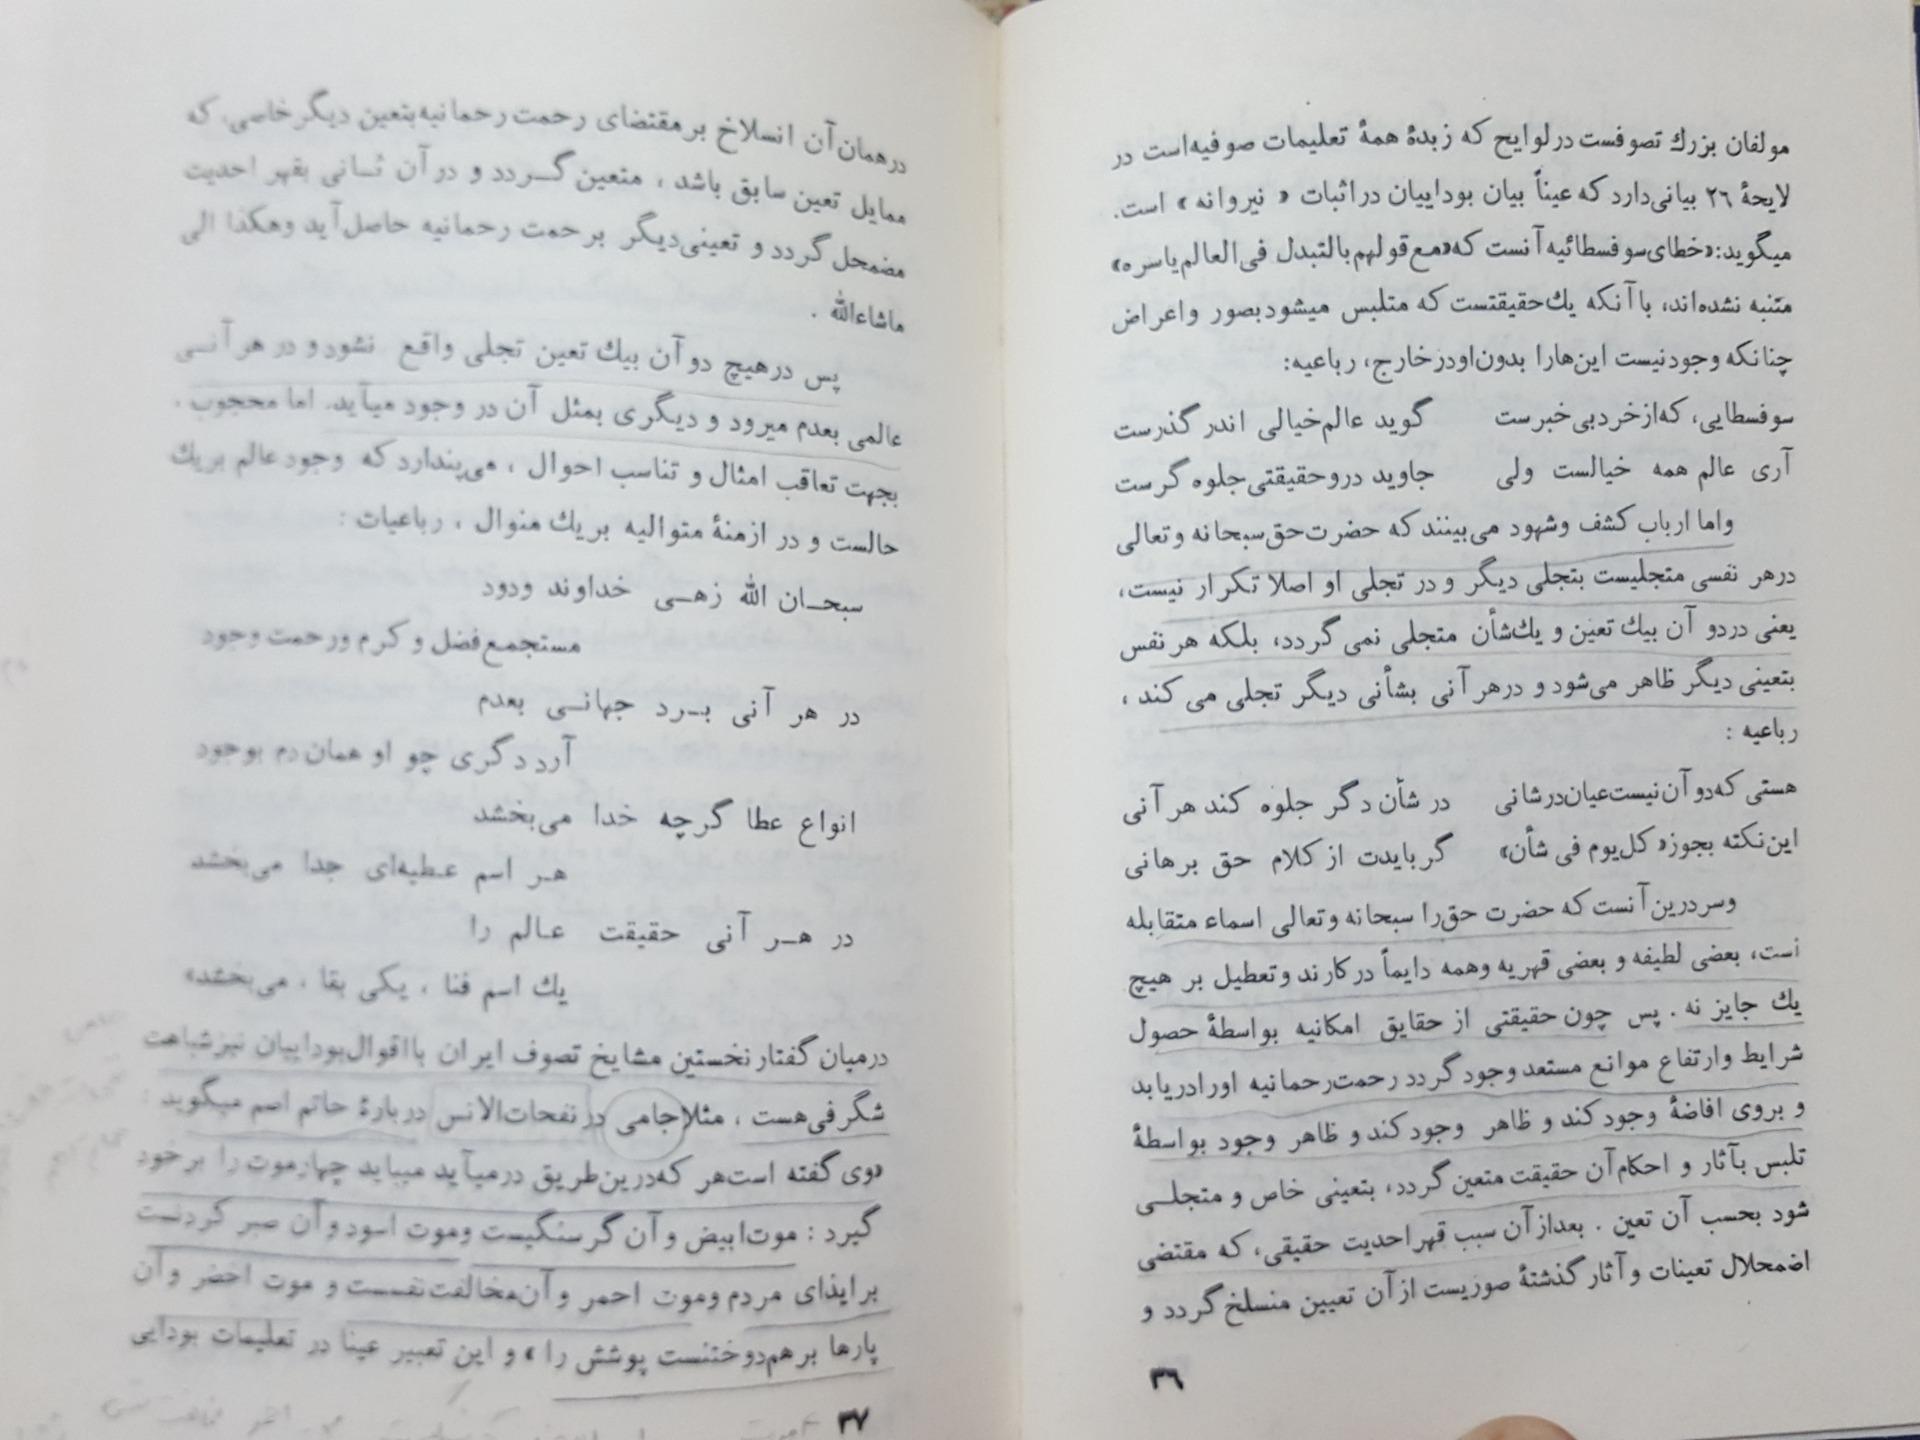 مولفان بزرك تصوفست درلوایح که زبدهٔ همهٔ تعلیمات صوفیه‌است در
لایحهٔ ۲۶ بیانی‌دارد که عیناً بیان بوداییان دراثبات « نیروانه » است.
میگوید:«خطای‌سوفسطائیه آنست که«مع‌قولهم‌بالتبدل فی‌العالم‌یاسره»
متنبه نشده‌اند، باآنکه یك‌حقیقتست که متلبس میشودبصور واعراض
چنانکه وجودنیست این‌هارا بدون‌اودرخارج، رباعیه:
سوفسطایی، که‌ازخردبی‌خبرست گوید عالم‌خیالی اندرگذرست
آری عالم همه خیالست ولی جاوید دروحقیقتی‌جلوه گرست
واما ارباب کشف وشهود می‌بینند که حضرت‌حق‌سبحانه وتعالی
درهر نفسی متجلیست بتجلی دیگر ودر تجلی او اصلا تکرار نیست،
یعنی دردو آن بیك تعین ویك‌شأن متجلی نمی گردد، بلکه هرنفس
بتعینی دیگر ظاهر می‌شود و درهر آنی بشأنی دیگر تجلی می کند ،
رباعیه :
هستی که‌دوآن‌نیست‌عیان‌درشانی در شأن دگر جلوه کند هرآنی
این‌نکته بجوز« کل‌یوم فی شأن» گربایدت از کلام حق برهانی
وسردرین‌آنست که حضرت حق‌را سبحانه وتعالی اسماء متقابله
است، بعضی لطیفه و بعضی قهریه وهمه دایماً درکارند وتعطیل بر هیچ
یك جایز نه . پس چون حقیقتی از حقایق امکانیه بواسطهٔ حصول
شرایط وارتفاع موانع مستعد وجودگردد رحمت‌رحمانیه اورادریابد
و بروی افاضهٔ وجودکند و ظاهر وجودکند و ظاهر وجود بواسطهٔ
تلبس بآثار و احکام‌آن حقیقت متعین گردد، بتعینی خاص و متجلــی
شود بحسب آن تعین . بعدازآن سبب قهراحدیت حقیقی، که مقتضی
اضمحلال تعینات وآثار گذشتهٔ صوریست ازآن تعیین منسلخ گردد و
۳۶
درهمان‌آن انسلاخ برمقتضای رحمت رحمانیه‌بتعین دیگرخاصی، که
ممایل تعین سابق باشد ، متعین گــردد و درآن ثـانی بقهر احدیت
مضمحل گردد و تعینی‌دیگر برحمت رحمانیه حاصل‌آید وهکذا الی
ماشاءالله .
پس درهیچ دوآن بیك تعین تجلی واقع نشود و در هرآنــی
عالمی بعدم میرود و دیگری بمثل آن در وجود میآید. اما محجوب .
بجهت تعاقب امثال و تناسب احوال ، می‌پندارد که وجودعالم بریك
حالست و در ازمنهٔ متوالیه بریك منوال ، رباعیات :
سبحــان الله زهــی خداوند ودود
مستجمع فضل وکرم ورحمت وجود
در هر آنی بـرد جهانـی بعدم
آرد دگری چو او همان دم بوجود
انواع عطا گرچه خدا می‌بخشد
هـر اسم عـطیه‌ای جدا می‌بخشد
در هــر آنی حقیقت عـالم را
یك اسم فنا ، یکی بقا ، می‌بخشد»
درمیان گفتارنخستین مشایخ تصوف ایران بااقوال‌بوداییان نیزشباهت
شگرفی‌هست ، مثلاجامی درنفحات‌الانس دربارهٔ حاتم اصم میگوید :
«وی گفته است‌هر که‌درین‌طریق درمیآید میباید چهارموت را برخود
گیرد : موت‌ابیض وآن گرسنگیست وموت اسود وآن صبر کردنست
برایذای مردم وموت احمر وآن‌مخالفت‌نفسست و موت اخضر وآن
پارها برهم‌دوختنست پوشش را » و این تعبیر عینا در تعلیمات بودایی
۳۷